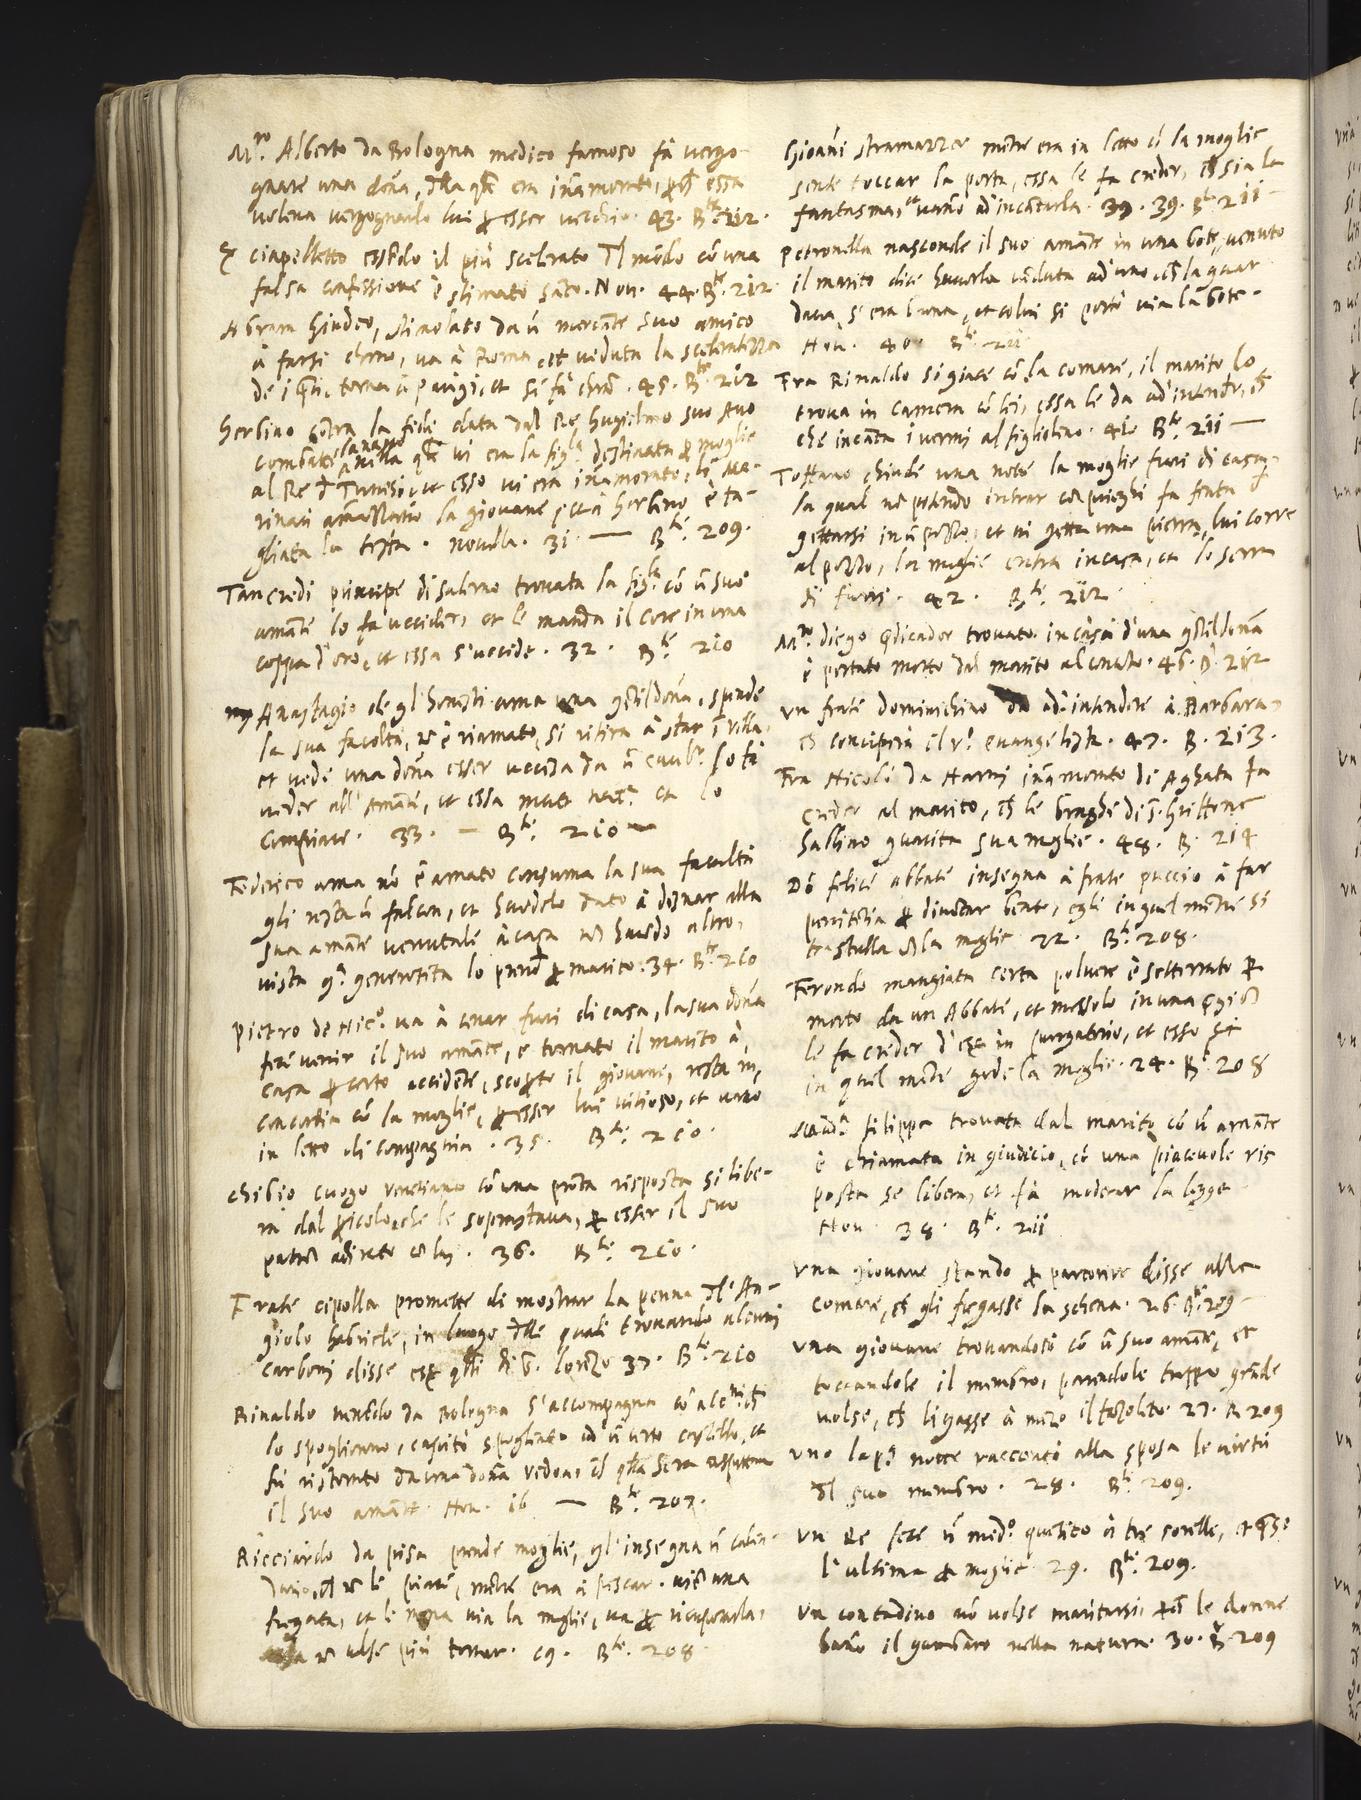 Mro. Alberto da Bologna medico famoso fà vergo-
gnare una dõna, della qle era inamorato, pche essa
voleva vergognarlo lui p esser vecchio. 43. Bte. 212.
Sr ciapelletto essẽdo il più scelerato del mõdo cõ una
falsa confissione è stimato sãto. Nov. 44. Bte. 212
Abram hiudeo, stimolato da ũ mercãte suo amico
à farsi chrno, va à Roma, et veduta la sceleratezza
de i pti, torna à parigi, et si fà chrno. 45. Bte. 212
herbino cõtra la fede data dal Re hugielmo suo Avo
combatte la nave nella qle vi era la figla destinata p moglie
al Re di Tunisi, et esso vi era inamorato, li ma-
rinari amazzano la giovane, et à herbino è ta-
gliata la testa. novella. 31. — Bte. 209.
Tancredi principe di salerno trovata la figla cõ ũ suo
amante lo fà uccider, et le manda il core in una
coppa d'oro, et essa s'uccide. 32. Bte. 210
Anastagio de gl'honesti ama una gẽtildõna, spende
la sua facoltà, nõ è riamato, si ritira à star ĩ villa,
et vede una dõna esser uccisa da ũ cavlr. lo fà
veder all'Amata, et essa mutat natra. et lo
compiace. 33. — Bte. 210 —
Federico ama nõ è amato consuma la sua facoltà
gli resta ũ falcon, et havẽdolo dato à disnar alla
sua amante venutale à casa nõ havẽdo altro,
vista qa. generosita lo prende p marito. 34. Bte. 210
Pietro de Nico. va à cenar fuori di casa, la sua dõna
feze venir il suo amãte, e tornato il marito à
casa p certo accidente, scopto il giovane, resta in
concordia cõ la moglie, p esser lui vitioso, et vano
in letto di compagnia. 35. Bte. 210.
chibio cuogo venetiano cõ una prõta risposta si libe-
ra dal pericolo, che le soprastava, p esser il suo
patrõ adirato cõ luj. 36. Bte. 210.
Frate cipolla promette di mostrar la penna dell'An-
giolo habriele, in luogo delle quali trovando alcuni
carboni disse esser qlli di S. lorẽzo 37. Bte. 210
Rinaldo venẽdo da Bologna s'accompagna cõ alcni. che
lo spogliano, capitò spogliato ad ũ certo castello, et
fù ristorato da una dõna vedoa, che qlla sera aspettava
il suo amante. Nov. 16 — Bte. 207.
Ricciardo da pisa prende moglie, gl'insegna ũ calen-
dario, che nõ le piace, mẽtre era à pescar. viẽ una
fregata, et li mena via la moglie, va p ricuperarla,
essa nõ volse più tornar. 19. Bte. 208.
Gioãni stramazzer mẽtre era in letto cõ la moglie
sente toccar la porta, essa le fa creder, che sia la
fantasma, et vano ad incãtarla. 39. Bte. 211
Petronella nasconde il suo amãte in una bote, venuto
il marito dice haverla vẽduta ad uno, che la guar
dava, s'era buona, et colui si portò via la bote.
Nov. 40. Bte. 211
Fra Rinaldo si giace cõ la comare, il marito lo
trova in camera cõ lei, essa le da ad intender, che
che incãta i vermi al figliolino. 41 Bte. 211 —
Toffano chiude una notte la moglie fuori di casa,
la qual nõ potẽdo intrar cõ prieghi fa finta di
gettarsi in ũ pozzo, et vi getta una pietra, lui corre
al pozzo, la moglie entra in casa, et lo serra
di fuori. 42. Bte. 212
Mro. diego pdicador trovato in casa d'una gẽtildõna
è portato morto dal marito al cõvẽto. 46. B. 212
un frate dominichino dà ad intendere à Barbara,
che concipirà il vo. evangelista. 47. B. 213.
Fra Nicolò da Narni inamorato di Aghata fa
creder al marito, che le braghe di S. Griffone
habbino guarita sua moglie. 48. B. 214
Dõ felice abbate insegna à frate puccio à far
penitẽtia p diventar beato, egli in quel mẽtre si
trastulla cõ la moglie 22. Bte. 208.
Ferondo mangiata certa polvere è sotterrato p
morto da un Abbate, et messolo in una pgiõ
le fa creder d'esser in purgatorio, et esso si
in quel mẽtre gode la moglie. 24. Bte. 208
Madõ. filippa trovata dal marito cõ ũ amante
è chiamata in giudicio, cõ una piacevole ris
posta se libera, et fà moderar la legge
Nov. 38. Bte. 211
una giovane stando p partorire disse alla
comare, che gli fregasse la schena. 26. Bte. 209
una giovane trovandosi cõ ũ suo amãte, et
toccandole il membro, parendole troppo grãde
volse, che ligasse à mezo il fazoleto. 27. B. 209
uno la pa. notte raccontò alla sposa le virtù
del suo membro. 28. Bte. 209.
un Re fece ũ medo. quesito à tre sorelle, et prese
l'ultima p moglie 29. Bte. 209.
un contadino nõ volse maritarsi, pche le donne
havão il gambaro nella natura. 30. B. 209